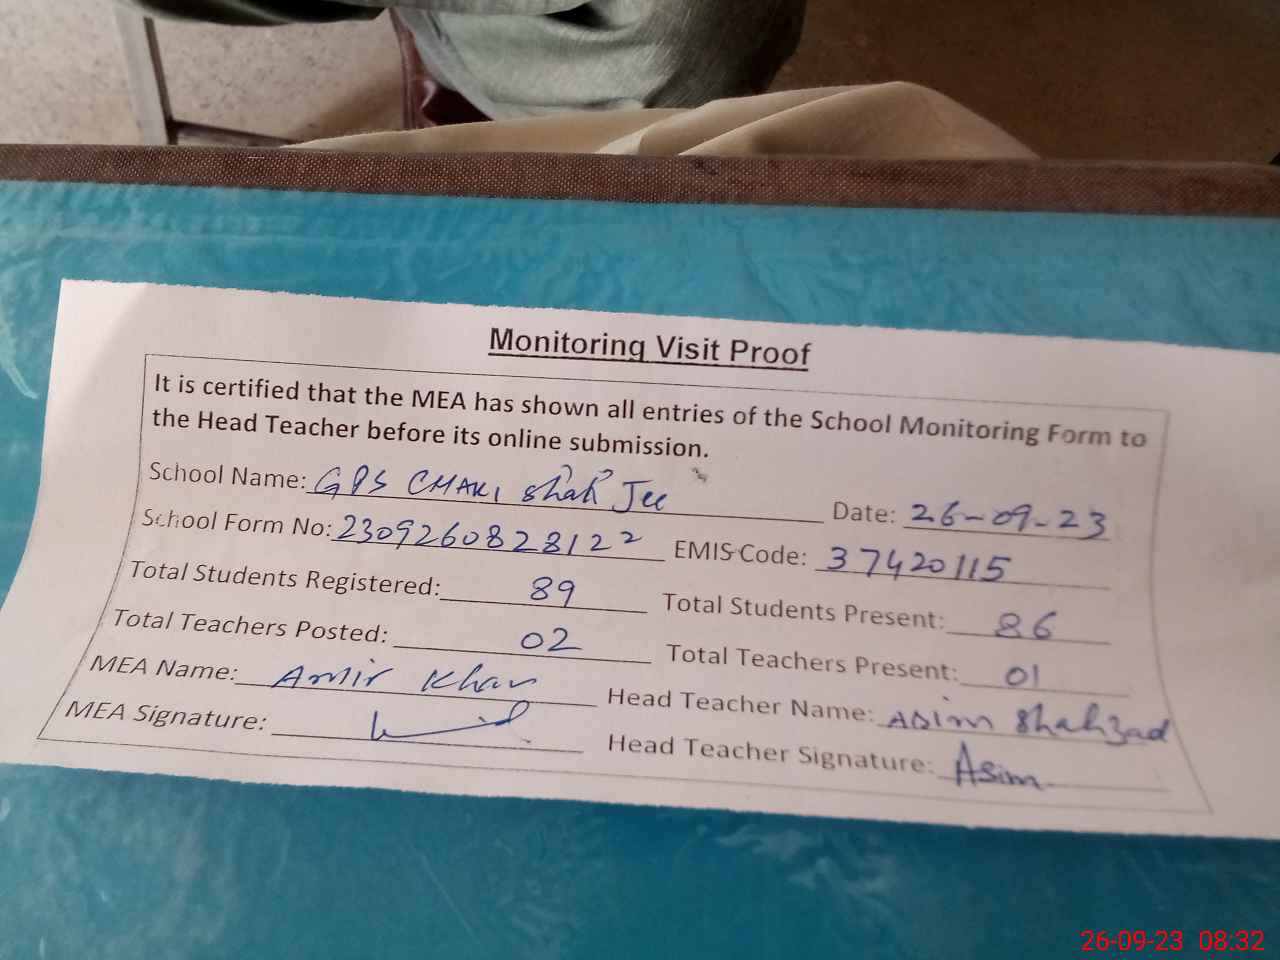 Monitoring Visit Proof
It is certified that the MEA has shown all entries of the School Monitoring Form to
the Head Teacher before its online submission.
School Name: GPS CHAKI Shah Jee Date: 26-09-23
School Form No: 2309260828122 EMIS Code: 37420115
Total Students Registered: 89 Total Students Present: 86
Total Teachers Posted: 02 Total Teachers Present: 01
MEA Name: Amir Khan Head Teacher Name: Asim Shahzad
MEA Signature: Head Teacher Signature: Asim
26-09-23 08:32